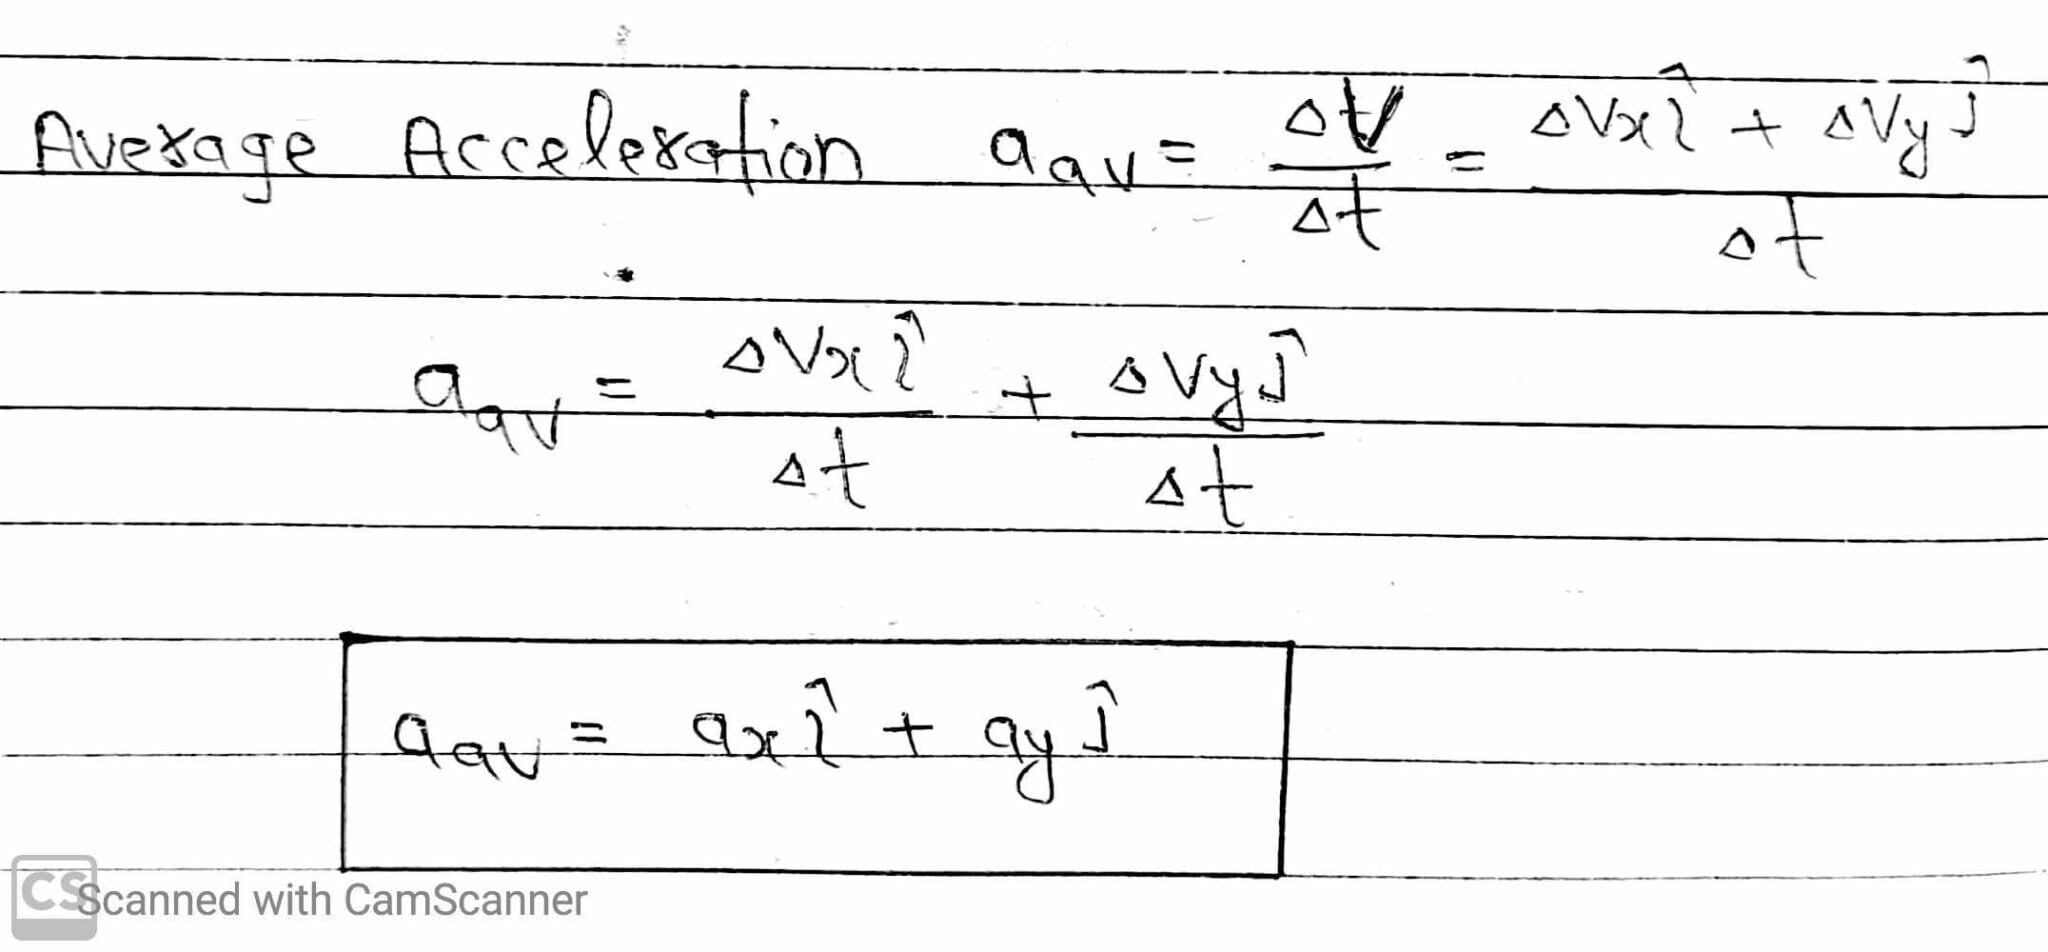 Average Acceleration a_av = ΔV/Δt = (ΔVx î + ΔVy ĵ)/Δt
a_av = ΔVx î/Δt + ΔVy ĵ/Δt
a_av = ax î + ay ĵ
CS Scanned with CamScanner